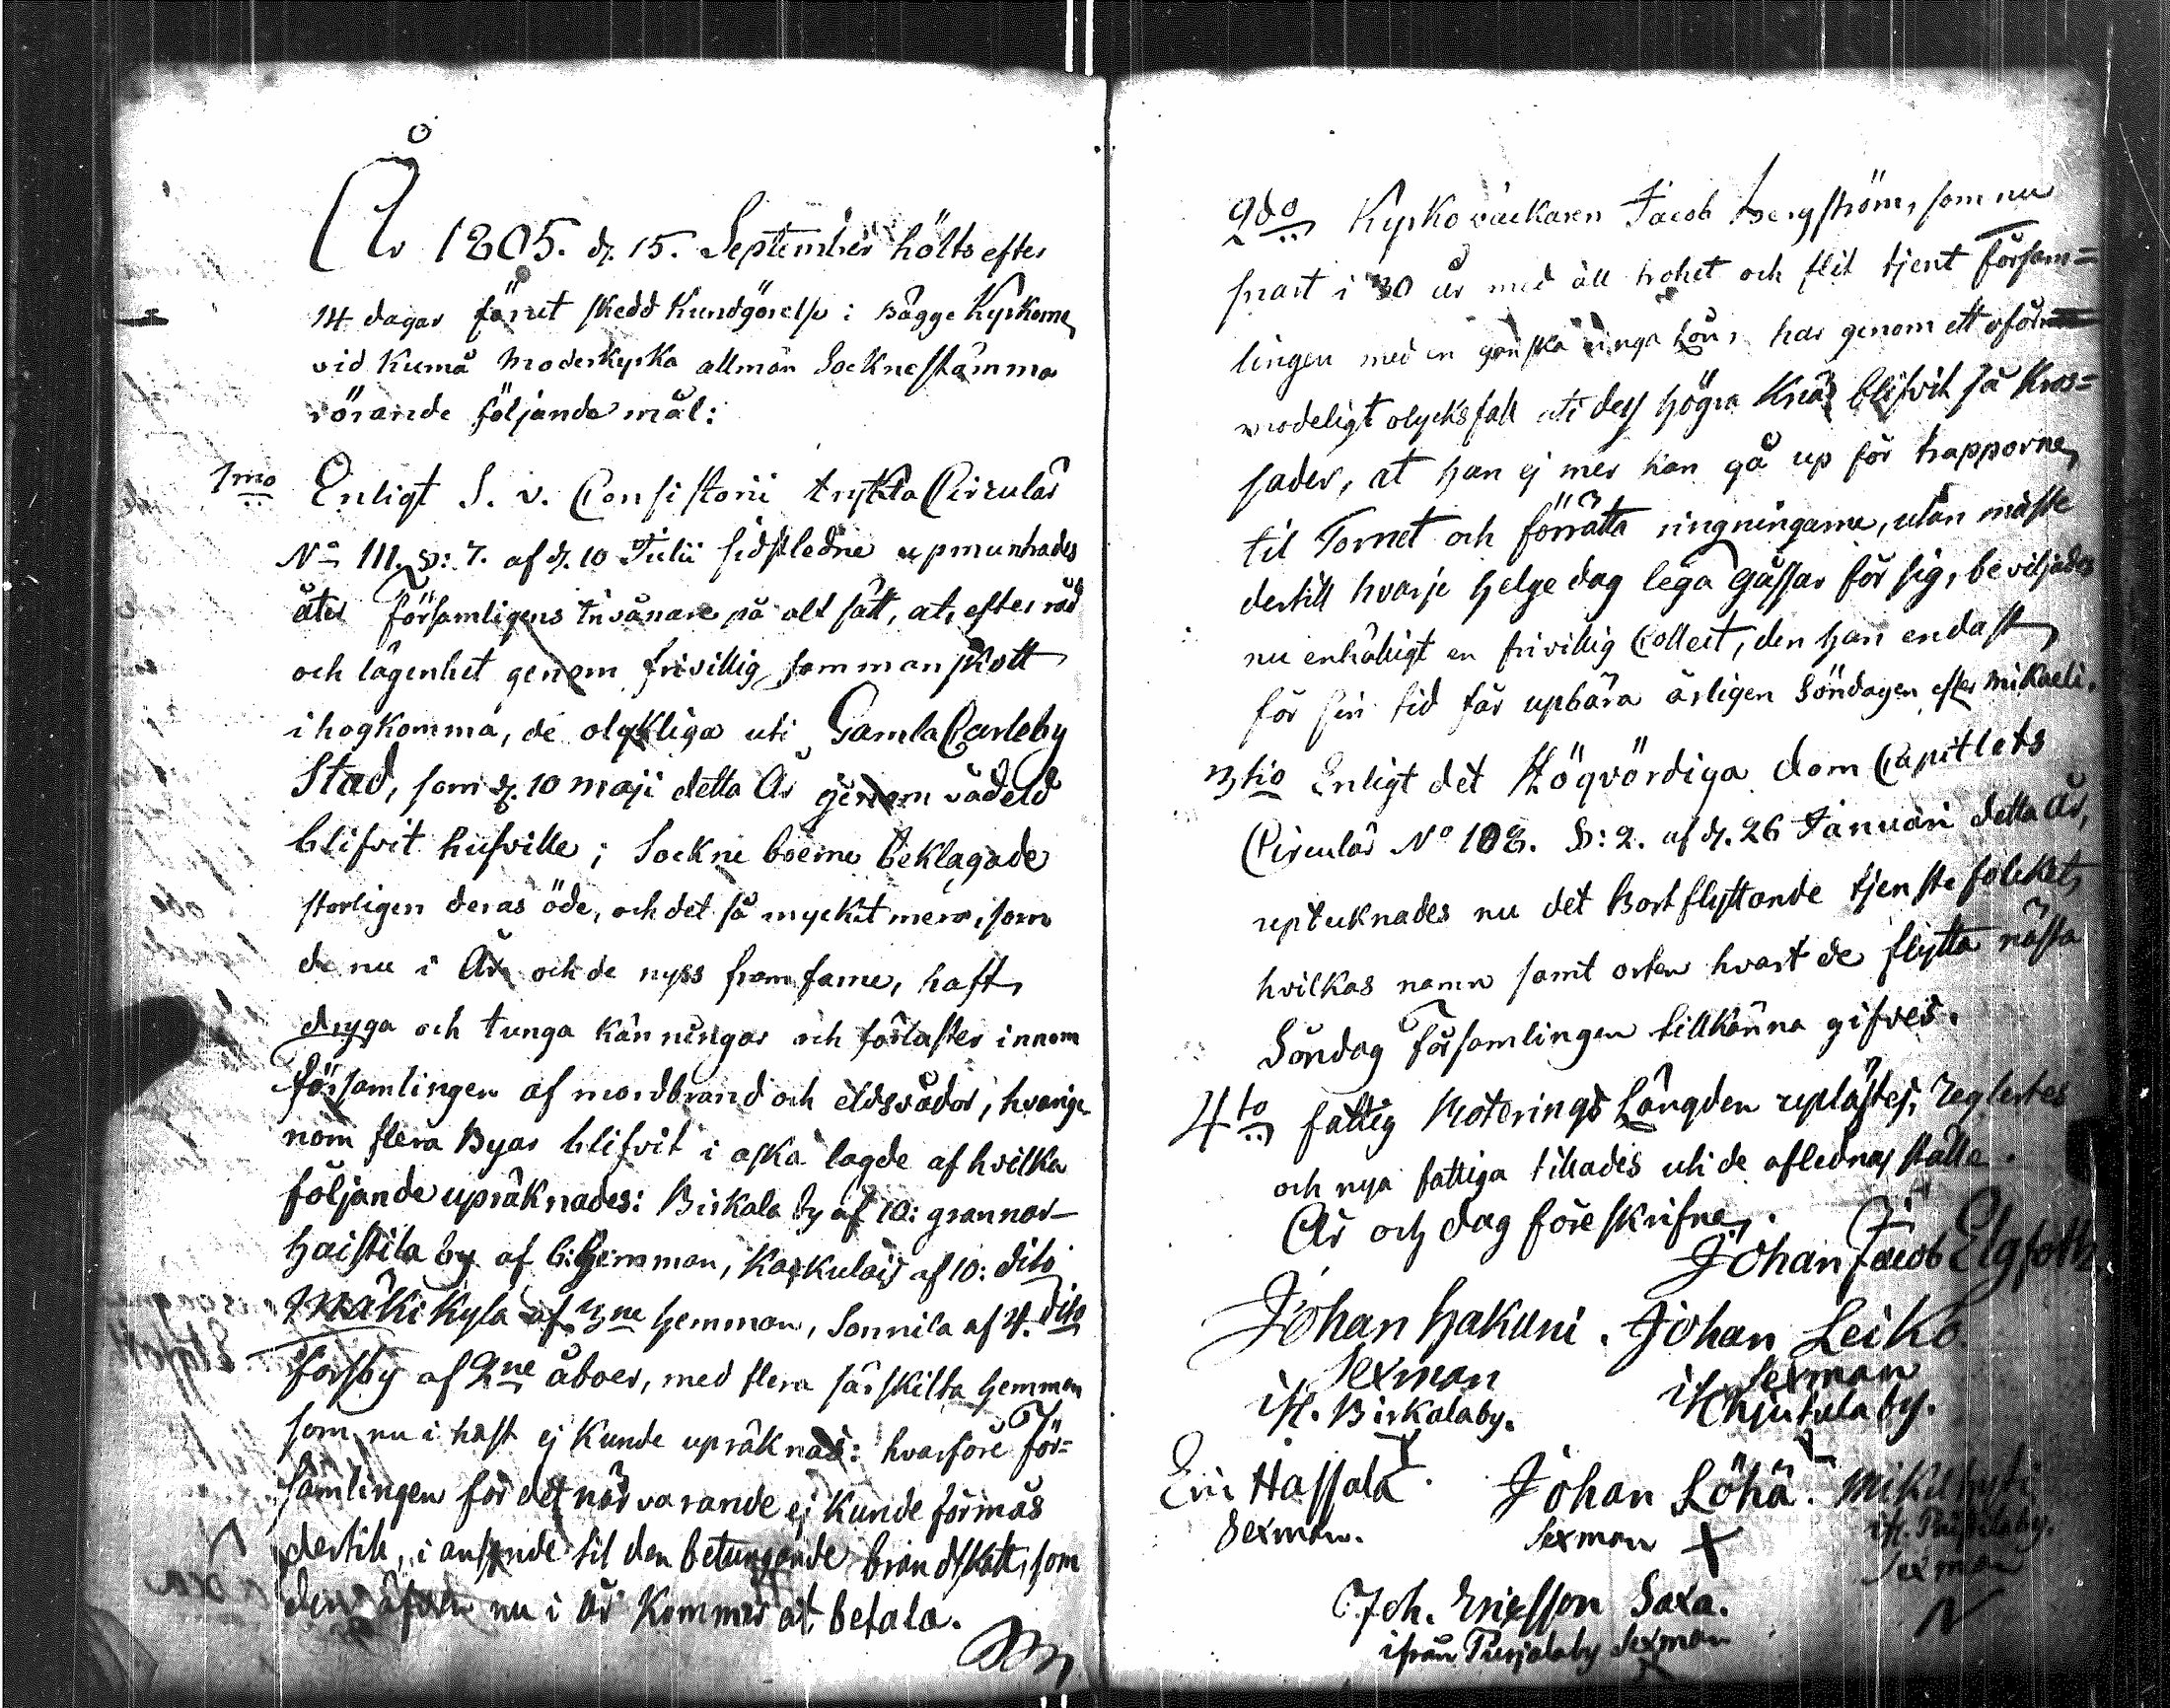 År 1805. d. 15. September hölts efter
14 dagar förut skedd Kundgörelse i bägge Kyrkorne,
vid Kumå Moderkyrka allmän Socknestämma
rörande följande mål:
1mo Enligt S. v. Consistorii trykta Circulär
No 111. §: 7. af d. 10 Julii sidstledne upmuntrades
åter Församligens Invånare på alt sätt, at, efter råd
och lägenhet genom frivillig sammanskott
ihogkomma, de olykliga uti Gamla Carleby
Stad, som d. 10 Maji detta År genom vådeld
blifvit husville; Sockneboerne beklagade
storligen deras öde, och det så myckit mera, som
de nu i År och de nyss framfarne, haft
dryga och tunga känningar och förluster innom
församlingen af mordbrand och eldsvådor, hvarige-
nom flera Byar blifvit i aska lagde af hvilka
följande upräknades: Birkala by af 10: grannar
Haistila by af 6: Hemman, Kaskulais af 10: dito
Mäkikylä af 3ne Hemman, Sonnila af 4. dito
Forsby af 2ne åboer, med flera särskilta Hemman
som nu i hast ej Kunde upräknas: hvarföre För=
samlingen för det närvarande ej Kunde förmås
dertil, i anseende til den betungande brandskatt, som
den äfven nu i år Kommer at betala.
2do Kyrkoväckaren Jacob Bergström, som nu
snart i 30 år med all trohet och flit tjent försam=
lingen med en ganska ringa Lön, har genom ett oför
modeligt olycksfall uti dess högra Knä blifvit så Kros=
sader, at han ej mer kan gå up för trapporne
til Tornet och förrätta ringningarne, utan måste
dertill hvarje Helgedag lega Gåssar för sig, beviljades
nu enhälligt en frivillig Collect, den han endast
för sin tid får upbära årligen Söndagen efter Mikaeli.
3tio Enligt det Högvördiga Dom Capitlets
Circulär No 108. §: 2. af d. 26 Januari detta År,
uptecknades nu det Bortflyttande tjenstefolcket,
hvilkas namn samt orten hvart de flytta nästa
Söndag Församlingen tillkänna gifves.
4to Fattig Roterings Längden uplästes, reglertes
och nya fattiga tillades uti de aflednas ställe.
År och dag föreskrifne.
Johan Jacob Elgfoth
Johan Hakuni. Johan Leiko.
Sexman Sexman
ifr. Birkalaby.
Eric Hassala. Johan Löhä.
Sexman. Sexman
Sexman
Joh. Ericsson Saxa.
ifrån Purjalaby Sexman